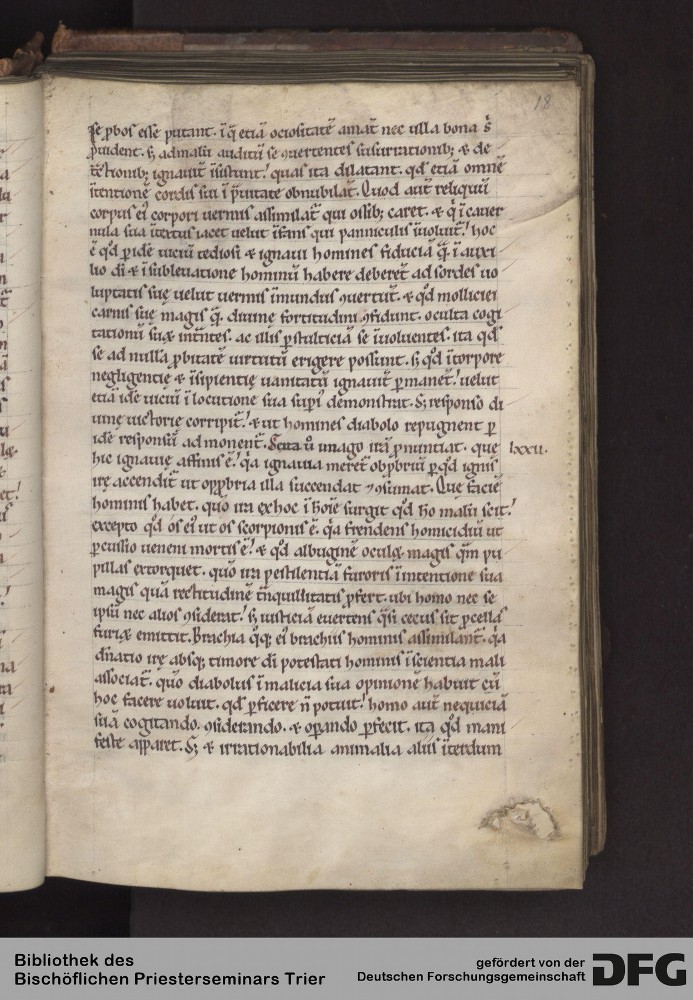 18
se ꝓbos esse putant. ı̄ q̄ etiā ociositatē amāt nec ulla bona s̄
puident. sꝫ ad malū auditū se ꝯuertentes susurrationibꝫ ⁊ de
tctionibꝫ ignauit̄ īsistunt. quas ita dilatant. qd̄ etiā omnē
ītentionē cordis sui ī prauitate obnubilāt. Quod aūt reliquū
corpus ei corpori uermis assimilat̄ qui ossibꝫ caret. ⁊ q̄ ī cauer
nula sua ītextus iacet uelut īfans qui panniculis īuoluit̄. hoc
ē qd̄ ꝑ idē uiciū tediosi ⁊ ignaui homines fiduciā q̄ ī auxi
lio di ⁊ ī subleuatione hominū habere deberēt ad sordes uo
luptatis suę uelut uermis īmundus ꝯuertūt. ⁊ qd̄ molliciei
carnis suę magis q̄ diuinę fortitudini ꝯfidunt. occulta cogi
tationū suaꝝ intrantes. ac illis ꝑ stulticiā se īuoluentes. ita qd̄
se ad nullā ꝓbitatē uirtutū erigere possunt. sꝫ qd̄ ī torpore
negligentię ⁊ īsipientię uanitatū ignauit̄ ꝑmanet. uelut
etiā idē uiciū ī locutione sua supi demonstrat. Sꝫ responso di
uinę uictorię corripit̄. ⁊ ut homines diabolo repugnent ꝑ
idē responsū admonent̄. Sexta ū imago irā ꝓnuntiat. que lxxii.
hic ignauię affinis ē. qa ignauia meret̄ obꝓbriū ꝑ qd̄ ignis
irę accendit̄ ut opꝓbria illa succendat ⁊ ꝯsumat. Que faciē
hominis habet. quō ira ex hoc ī hoīe surgit qd̄ hō malū scit.
excepto qd̄ os ei ut os scorpionis ē. qa frendens homicidiū ut
ꝑcussio ueneni mortis ē. ⁊ qd̄ albuginē oculoꝝ magis qm̄ pu
pillas extorquet. quō ira pestilentiā furoris ī intentione sua
magis quā rectitudinē tnquillitatis ꝓfert. ubi homo nec se
ipsū nec alios ꝯsiderat. sꝫ iusticiā euertens qsi cecus sit ꝓcellas
furiaꝝ emittit. Brachia qꝫ ei brachiis hominis assimilant̄. qa
dnatio irę absqꝫ timore di potestati hominis ī scientia mali
associat̄. quō diabolus ī malicia sua opinionē habuit cū
hoc facere uoluit. qd̄ ꝑficere n̄ potuit. homo aūt nequiciā
suā cogitando. ꝯsiderando. ⁊ oꝑando ꝑfecit. ita qd̄ mani
feste apparet. Sꝫ ⁊ irrationabilia animalia aliis īterdum
Bibliothek des
Bischöflichen Priesterseminars Trier
gefördert von der
Deutschen Forschungsgemeinschaft
DFG